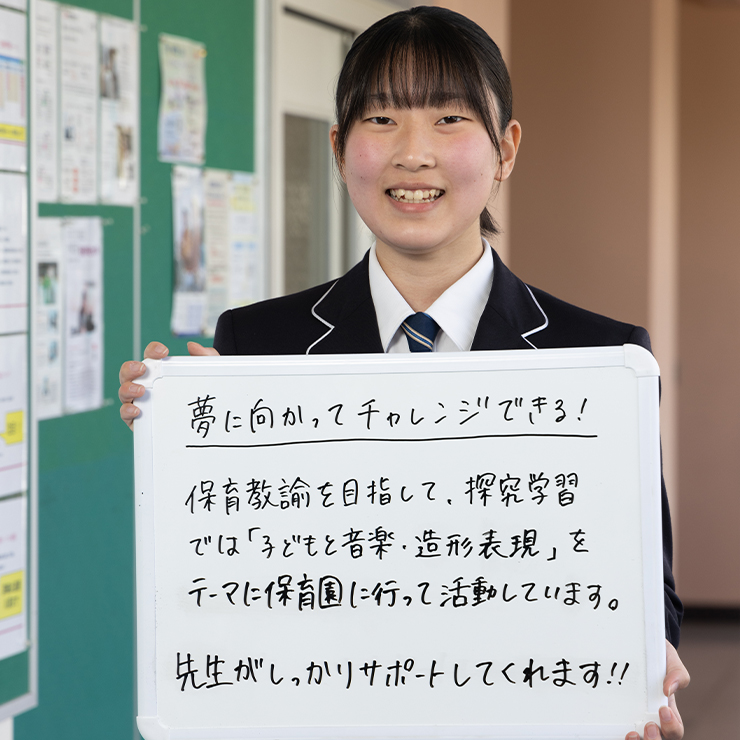 夢に向かってチャレンジできる!
保育教諭を目指して、探究学習
では「子どもと音楽・造形表現」を
テーマに保育園に行って活動しています。
先生がしっかりサポートしてくれます!!